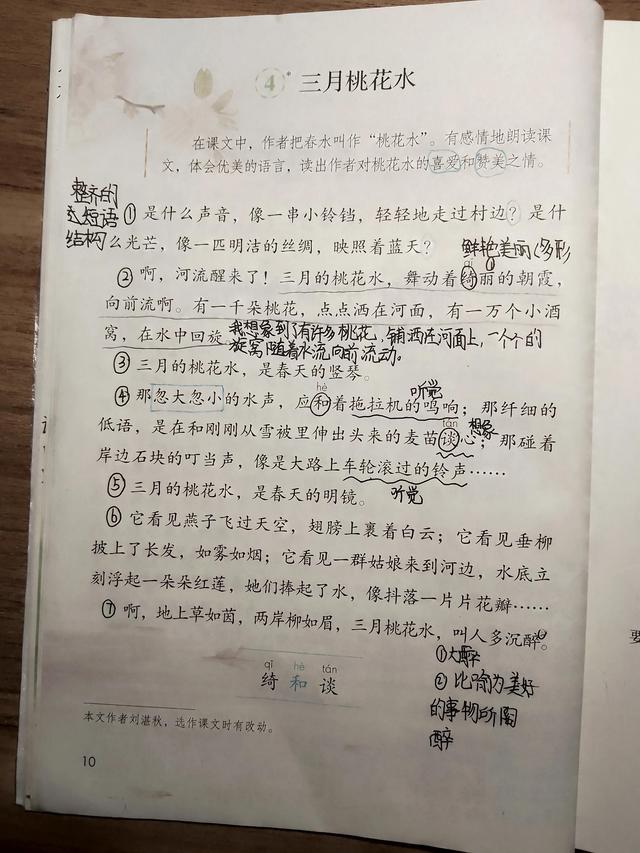 4* 三月桃花水
在课文中，作者把春水叫作“桃花水”。有感情地朗读课
文，体会优美的语言，读出作者对桃花水的喜爱和赞美之情。
整齐的
短语
结构
①是什么声音，像一串小铃铛，轻轻地走过村边？是什
么光芒，像一匹明洁的丝绸，映照着蓝天？
鲜艳美丽（多形
qǐ
②啊，河流醒来了！三月的桃花水，舞动着绮丽的朝霞，
向前流啊。有一千朵桃花，点点洒在河面，有一万个小酒
窝，在水中回旋。
我想象到了有许多桃花，铺洒在河面上，一个个的
旋窝随着水流向前流动。
③三月的桃花水，是春天的竖琴。
hè
听觉
④那忽大忽小的水声，应和着拖拉机的鸣响；那纤细的
tán
想象
低语，是在和刚刚从雪被里伸出头来的麦苗谈心；那碰着
岸边石块的叮当声，像是大路上车轮滚过的铃声……
⑤三月的桃花水，是春天的明镜。
听觉
⑥它看见燕子飞过天空，翅膀上裹着白云；它看见垂柳
披上了长发，如雾如烟；它看见一群姑娘来到河边，水底立
刻浮起一朵朵红莲，她们捧起了水，像抖落一片片花瓣……
⑦啊，地上草如茵，两岸柳如眉，三月桃花水，叫人多沉醉。
①大醉
②比喻为美好
的事物所陶
醉
qǐ hè tán
绮 和 谈
本文作者刘湛秋，选作课文时有改动。
10